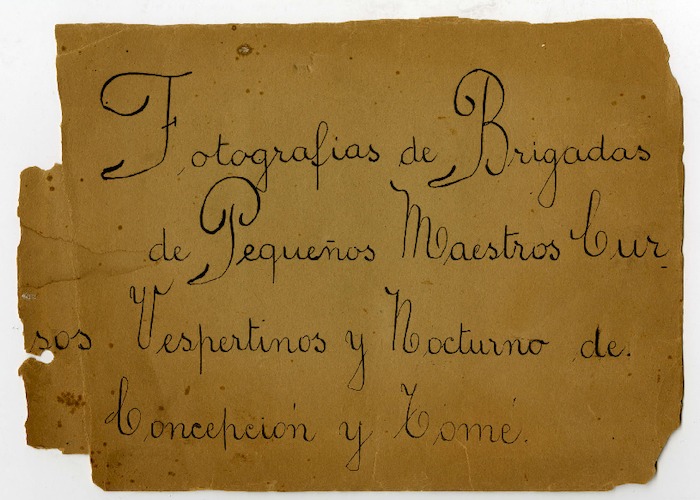 Fotografias de Brigadas
de Pequeños Maestros Cur-
sos Vespertinos y Nocturno de.
Concepción y Tomé.